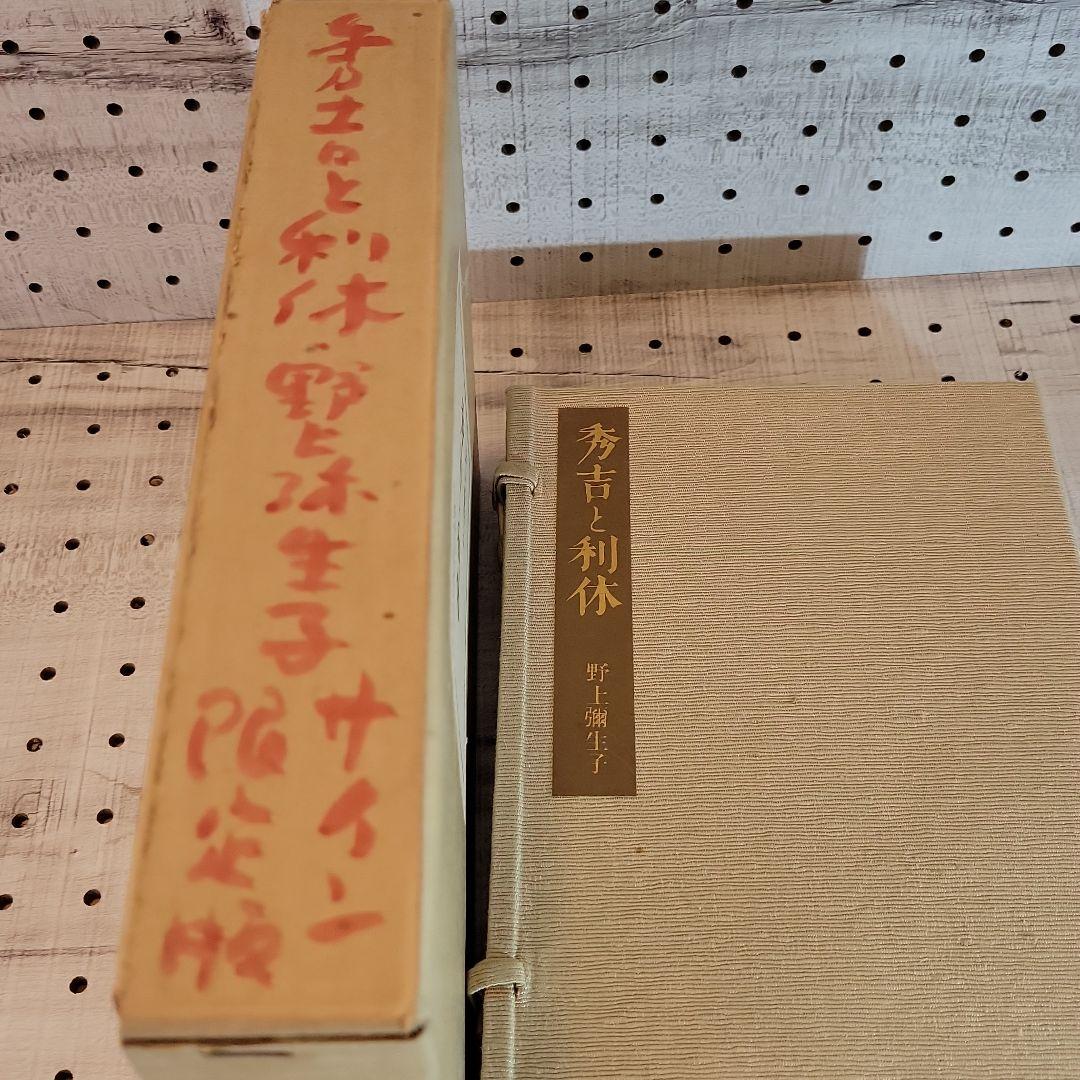 秀吉と利休・野上弥生子
サイン
限定版
秀吉と利休
野上彌生子